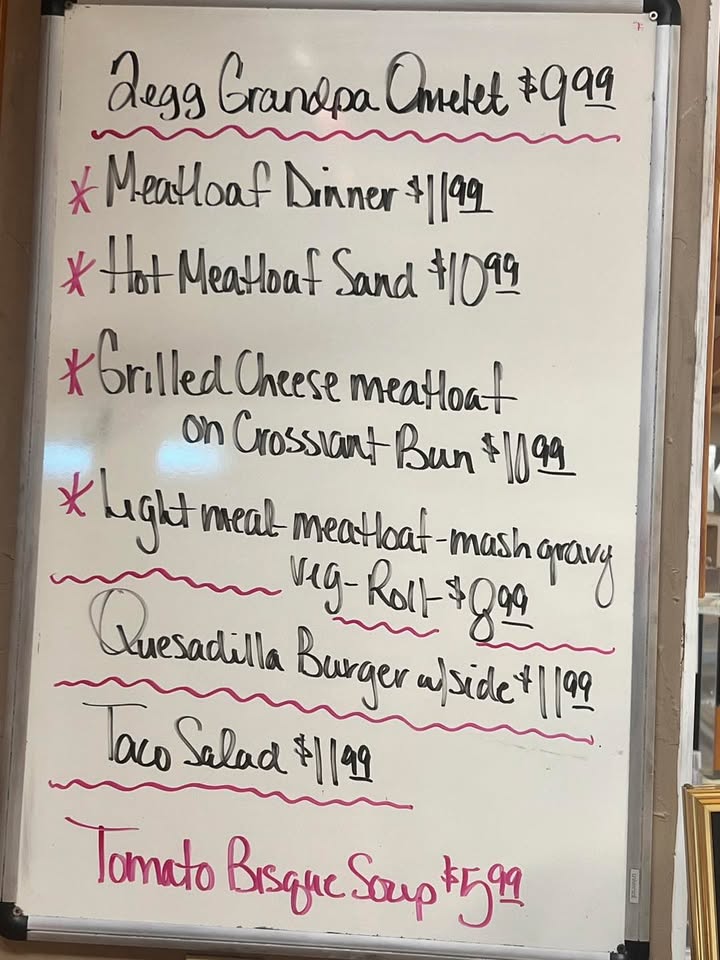 2egg Grandpa Omelet $9.99
* Meatloaf Dinner $11.99
* Hot Meatloaf Sand $10.99
* Grilled Cheese meatloaf
on Crossiant Bun $10.99
* Light meal-meatloaf-mash gravy
veg-Roll-$8.99
Quesadilla Burger w/side $11.99
Taco Salad $11.99
Tomato Bisque Soup $5.99